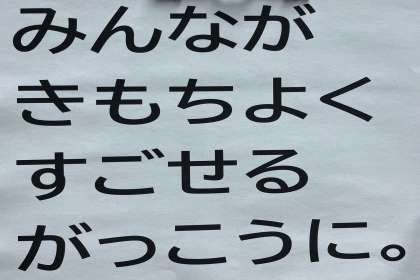 みんなが
きもちよく
すごせる
がっこうに。